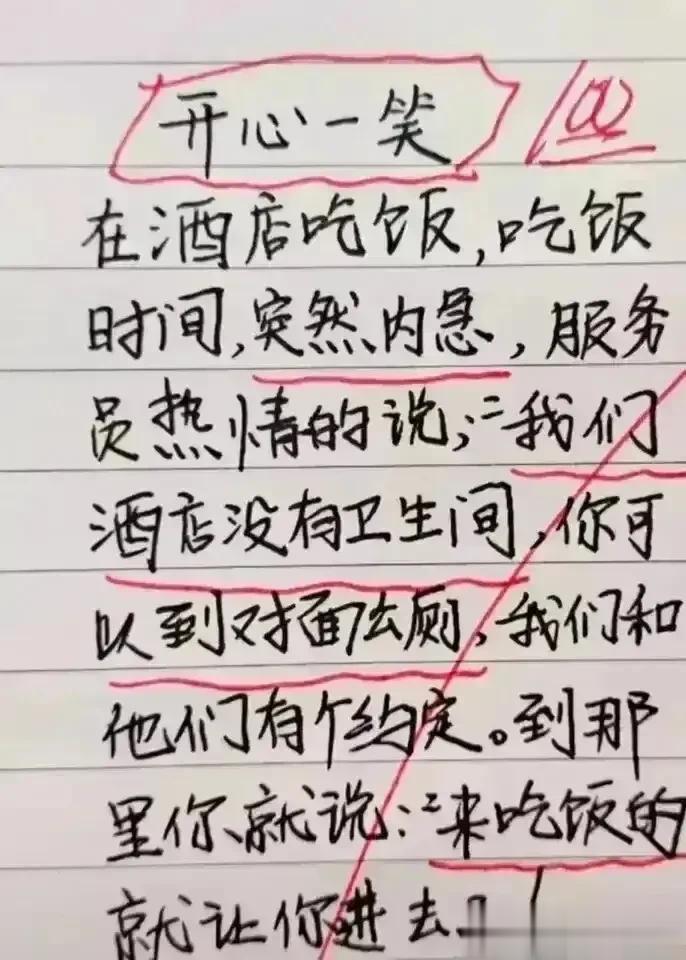 开心一笑
在酒店吃饭,吃饭
时间,突然内急,服务
员热情的说;"我们
酒店没有卫生间,你可
以到对面公厕,我们和
他们有个约定。到那
里你就说:"来吃饭的
就让你进去